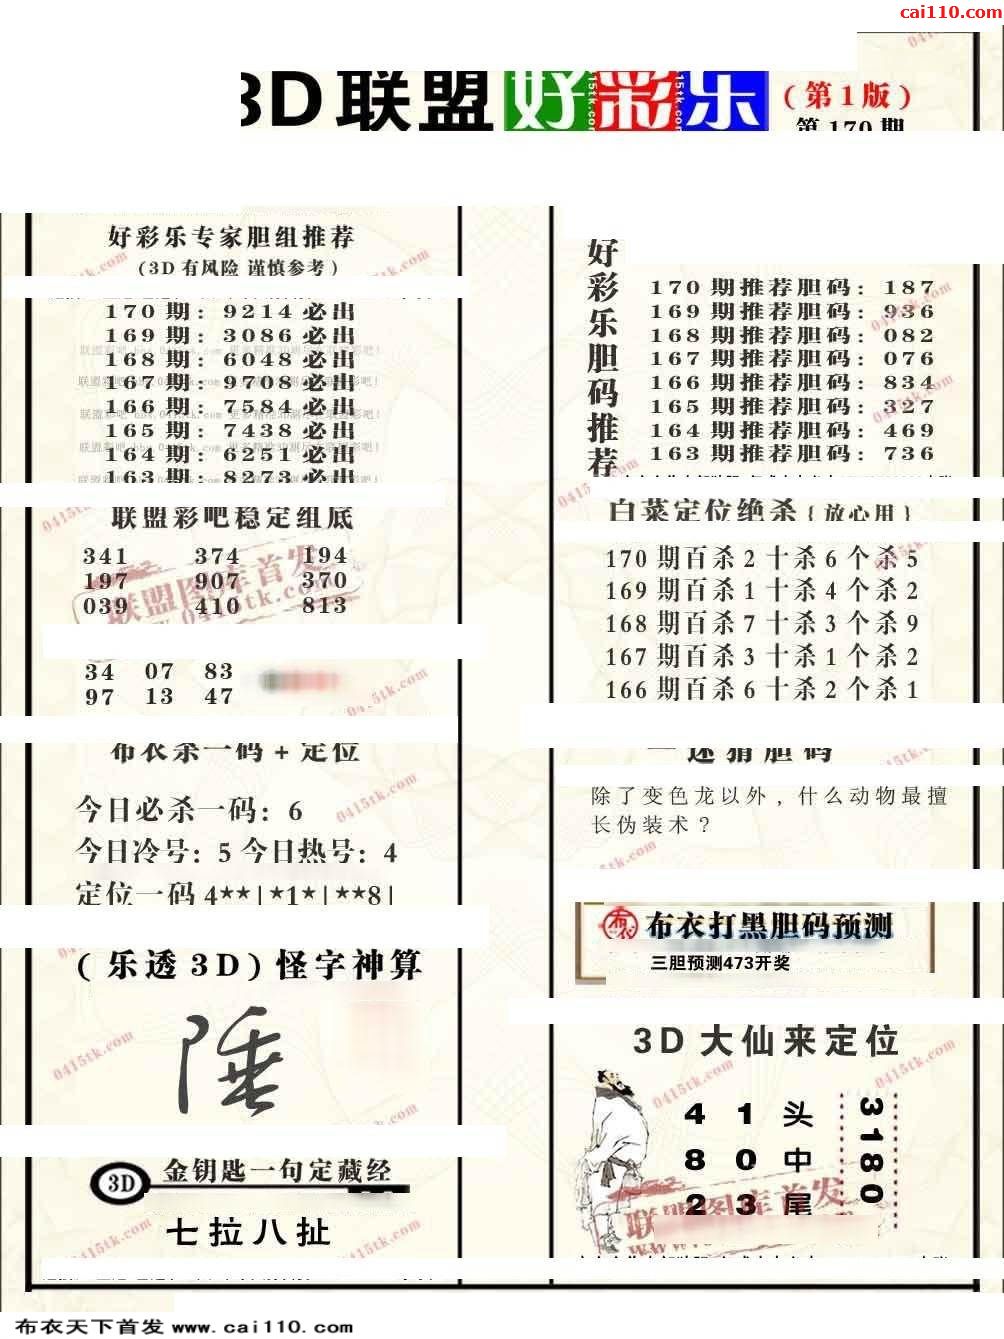 cai110.com
3D联盟 好彩乐 (第1版)
第170期
好彩乐专家胆组推荐
(3D有风险 谨慎参考)
170期: 9214必出
169期: 3086必出
168期: 6048必出
167期: 9708必出
166期: 7584必出
165期: 7438必出
164期: 6251必出
163期: 8273必出
联盟彩吧稳定组底
341 374 194
197 907 370
039 410 813
34 07 83
97 13 47
布衣杀一码+定位
今日必杀一码: 6
今日冷号: 5 今日热号: 4
定位一码 4**|*1*|**8|
(乐透3D)怪字神算
陲
3D 金钥匙一句定藏经
七拉八扯
好彩乐胆码推荐
170期推荐胆码: 187
169期推荐胆码: 936
168期推荐胆码: 082
167期推荐胆码: 076
166期推荐胆码: 834
165期推荐胆码: 327
164期推荐胆码: 469
163期推荐胆码: 736
白菜定位绝杀{放心用}
170期百杀2十杀6个杀5
169期百杀1十杀4个杀2
168期百杀7十杀3个杀9
167期百杀3十杀1个杀2
166期百杀6十杀2个杀1
一迷猜胆码
除了变色龙以外，什么动物最擅
长伪装术？
布衣 布衣打黑胆码预测
三胆预测473开奖
3D大仙来定位
4 1 头
8 0 中
2 3 尾
3180
联盟图库首发
0415tk.com
布衣天下首发 www.cai110.com